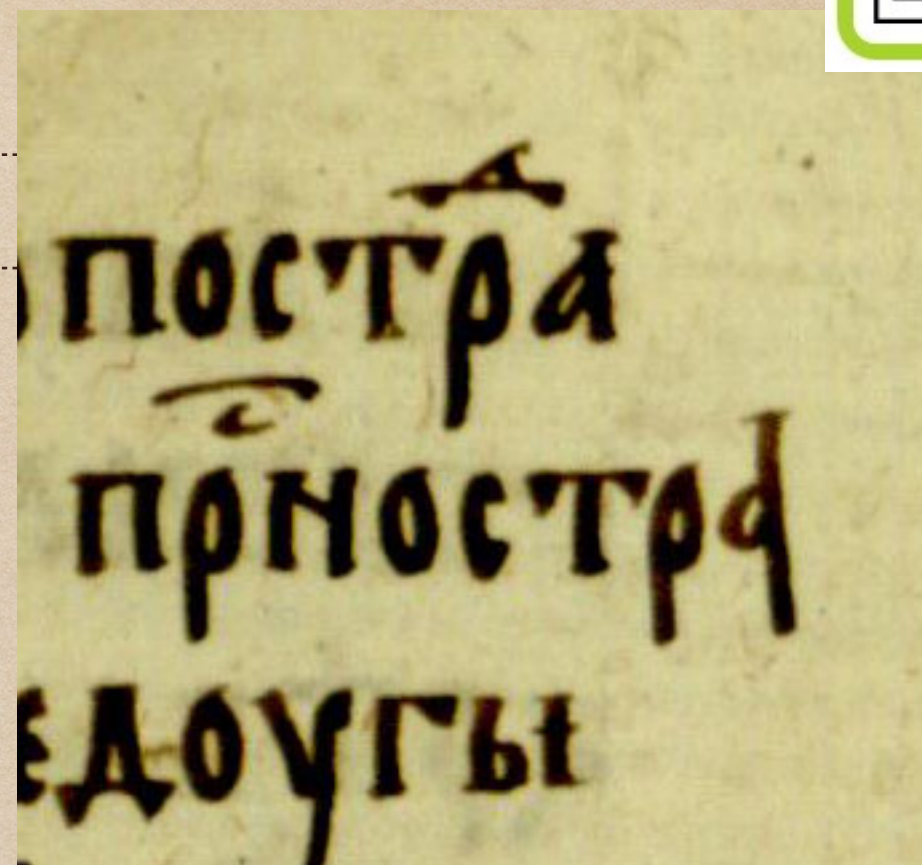 пострⷣа
прⷭ҇ностра
едоугы